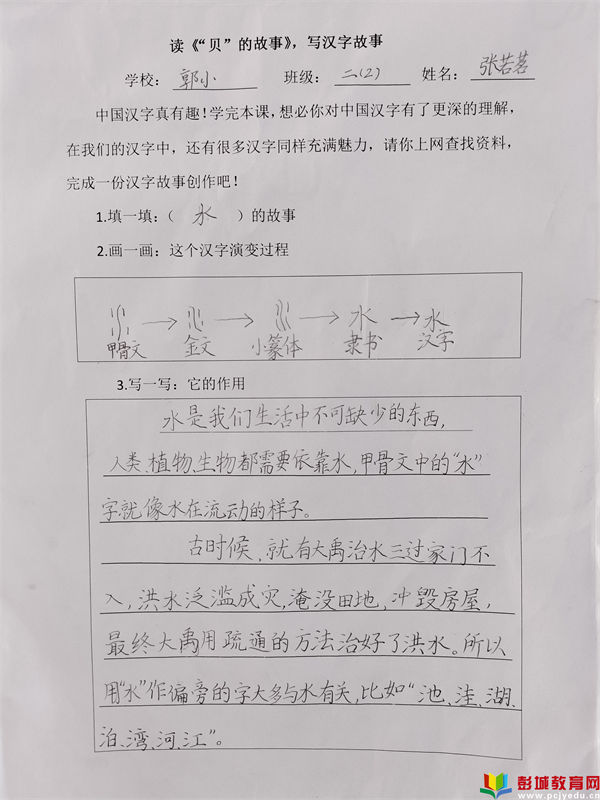 读《“贝”的故事》，写汉字故事
学校：郭小 班级：二(2) 姓名：张若茗
中国汉字真有趣！学完本课，想必你对中国汉字有了更深的理解，
在我们的汉字中，还有很多汉字同样充满魅力，请你上网查找资料，
完成一份汉字故事创作吧！
1.填一填：（ 水 ）的故事
2.画一画：这个汉字演变过程
→ → → 水 → 水
甲骨文 金文 小篆体 隶书 汉字
3.写一写：它的作用
水是我们生活中不可缺少的东西，
人类、植物、生物都需要依靠水，甲骨文中的“水”
字就像水在流动的样子。
古时候、就有大禹治水三过家门不
入，洪水泛滥成灾，淹没田地，冲毁房屋，
最终大禹用疏通的方法治好了洪水。所以
用“水”作偏旁的字大多与水有关，比如“池、洼、湖、
泊、湾、河、江”。
彭城教育网
www.pcjyedu.cn